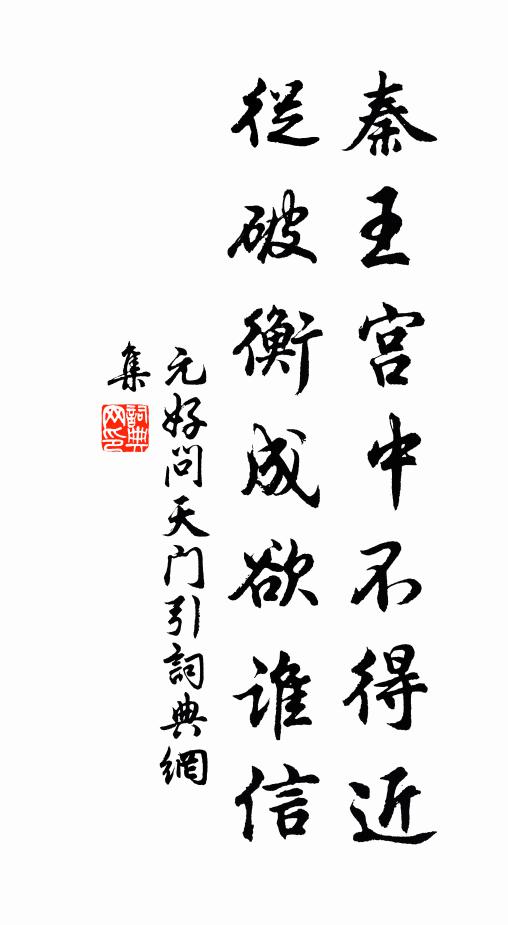 秦王宫中不得近
從破衡成欲谁信
元好问天门引詞典網
集
詞典网印